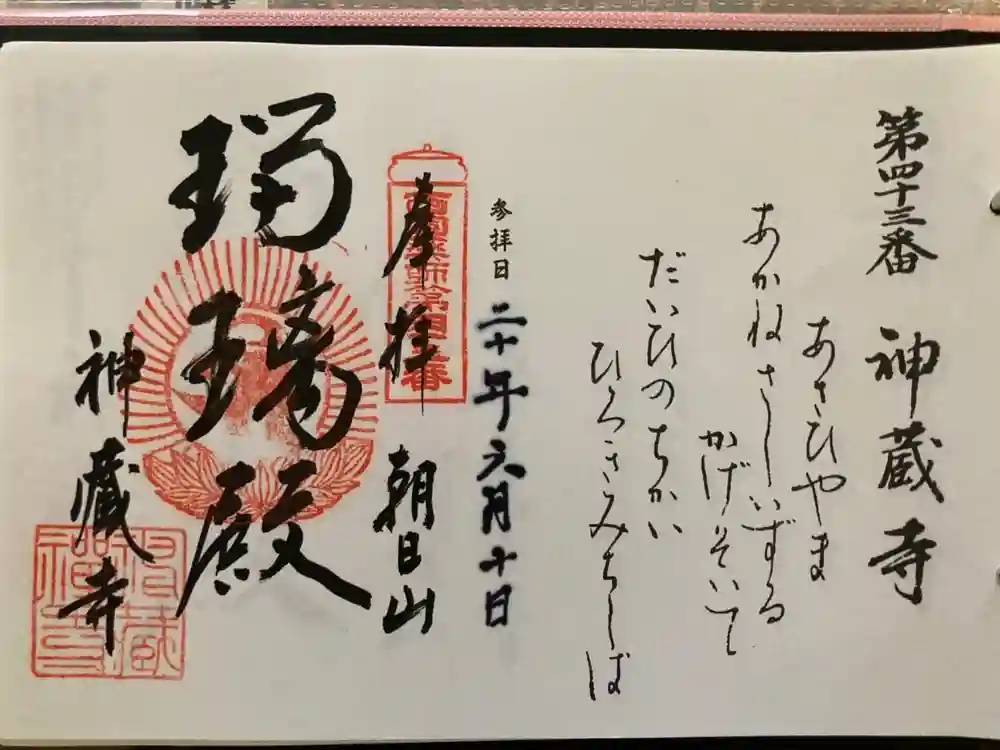 第四十三番 神蔵寺
あさひやま
あかねさしいずる
かげそいて
だいひのちかい
ひろきみちしば
参拝日 二十年六月十日
奉拝 朝日山
西国薬師第四十三番
瑠璃殿
神蔵寺
神蔵寺